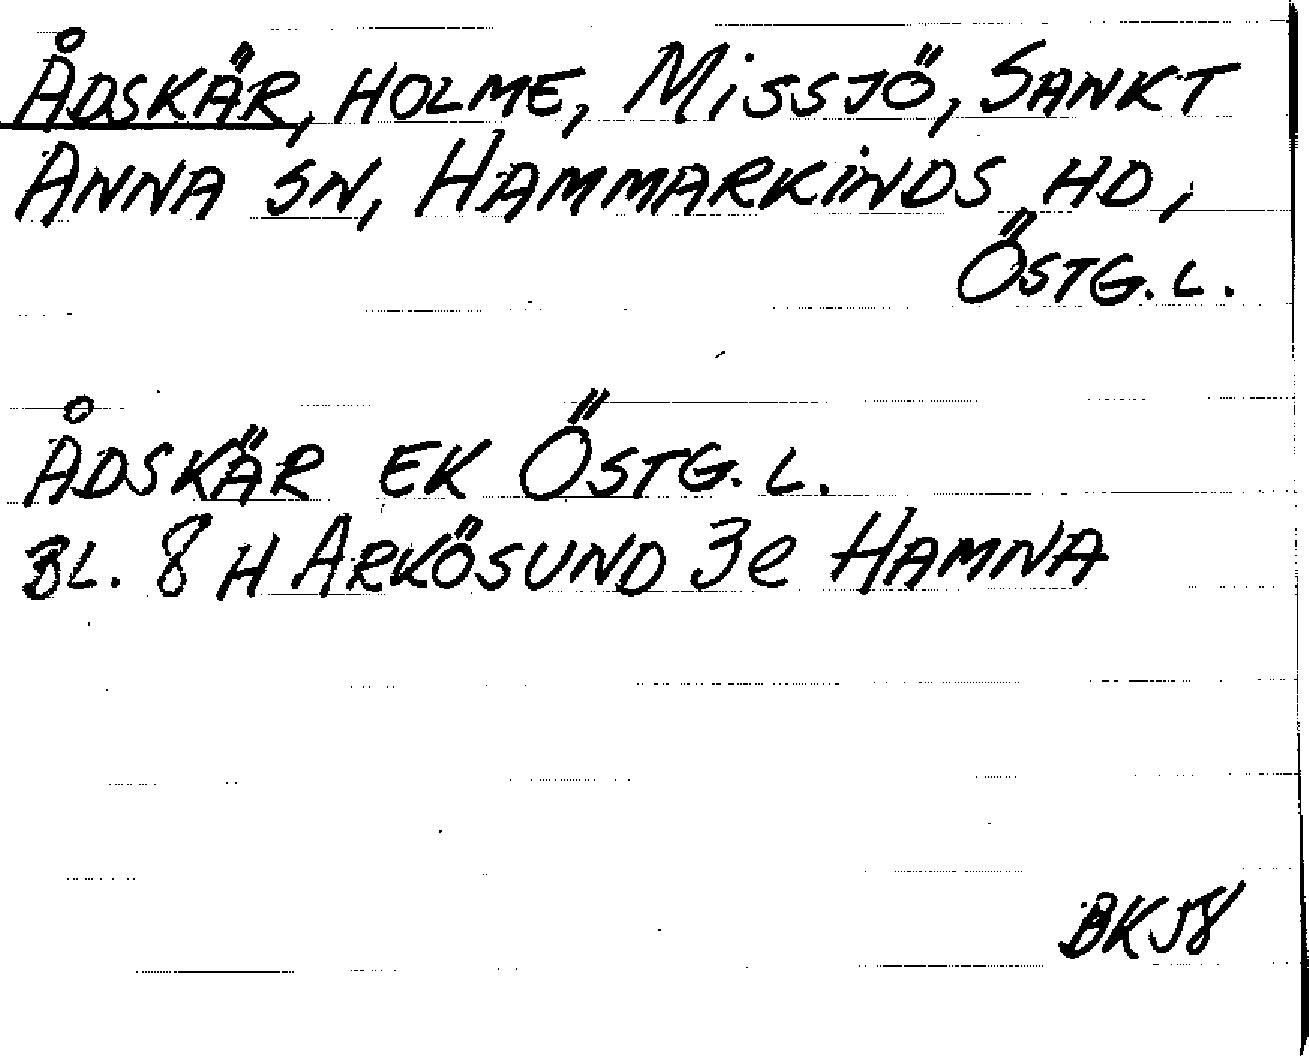 ÅDSKÄR, HOLME, MISSJÖ, SANKT
ANNA SN, HAMMARKINDS HD,
ÖSTG. L.
ÅDSKÄR EK ÖSTG. L.
BL. 8 H ARKÖSUND 3e HAMNA